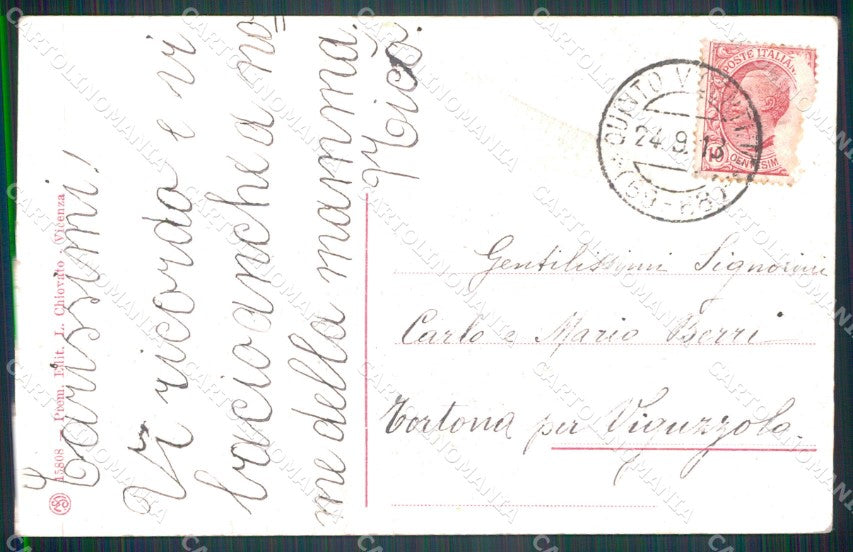 Carissimi!
Vi ricordo e vi
bacio anche a no=
me della mamma.
Micò.
15808 - Prem. Edit. L. Chiovato - Vicenza
POSTE ITALIANE
CENTESIMI
QUINTO
24.9.13
Gentilissimi Signorini
Carlo e Mario Berri
Tortona per Viguzzolo.
CARTOLINOMANIA